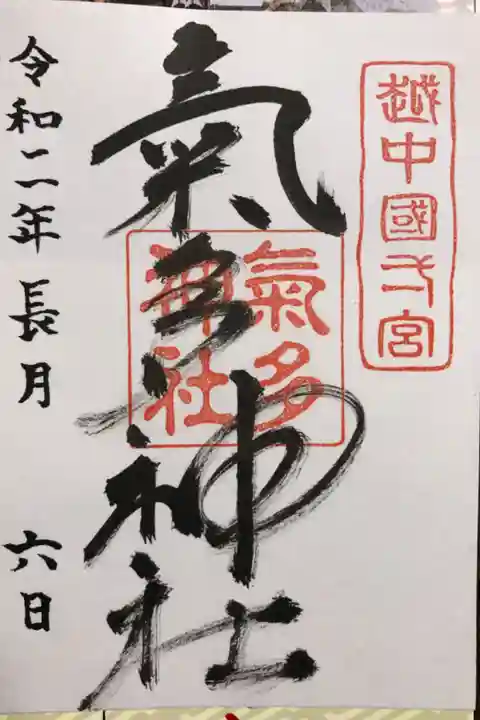 越中國一宮
氣多神社
氣多
神社
令和二年長月 六日